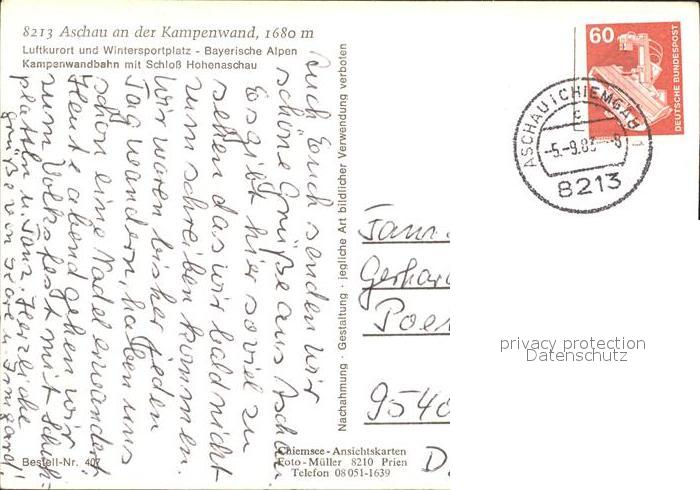 8213 Aschau an der Kampenwand, 1680 m
Luftkurort und Wintersportplatz - Bayerische Alpen
Kampenwandbahn mit Schloß Hohenaschau
Auch Euch senden wir
schöne Grüße aus Aschau.
Es gibt hier so viel zu
sehen das wir bald nicht
zum schreiben kommen.
Wir waren bisher jeden
Tag wandern, haben uns
schon eine Nadel erwandert.
Heute abend gehen wir
zum Volksfest mit Schuh-
platteln u. Tanz. Herzliche
Grüße von u. Irmgard!
Bestell-Nr. 407
Nachahmung · Gestaltung · jegliche Art bildlicher Verwendung verboten
Chiemsee-Ansichtskarten
Foto-Müller 8210 Prien
Telefon 08051-1639
60
DEUTSCHE BUNDESPOST
ASCHAU I CHIEMGAU 1
c
-5.-9.83--8
8213
Fam.
Gerhar
Poe
9540
D.
privacy protection
Datenschutz